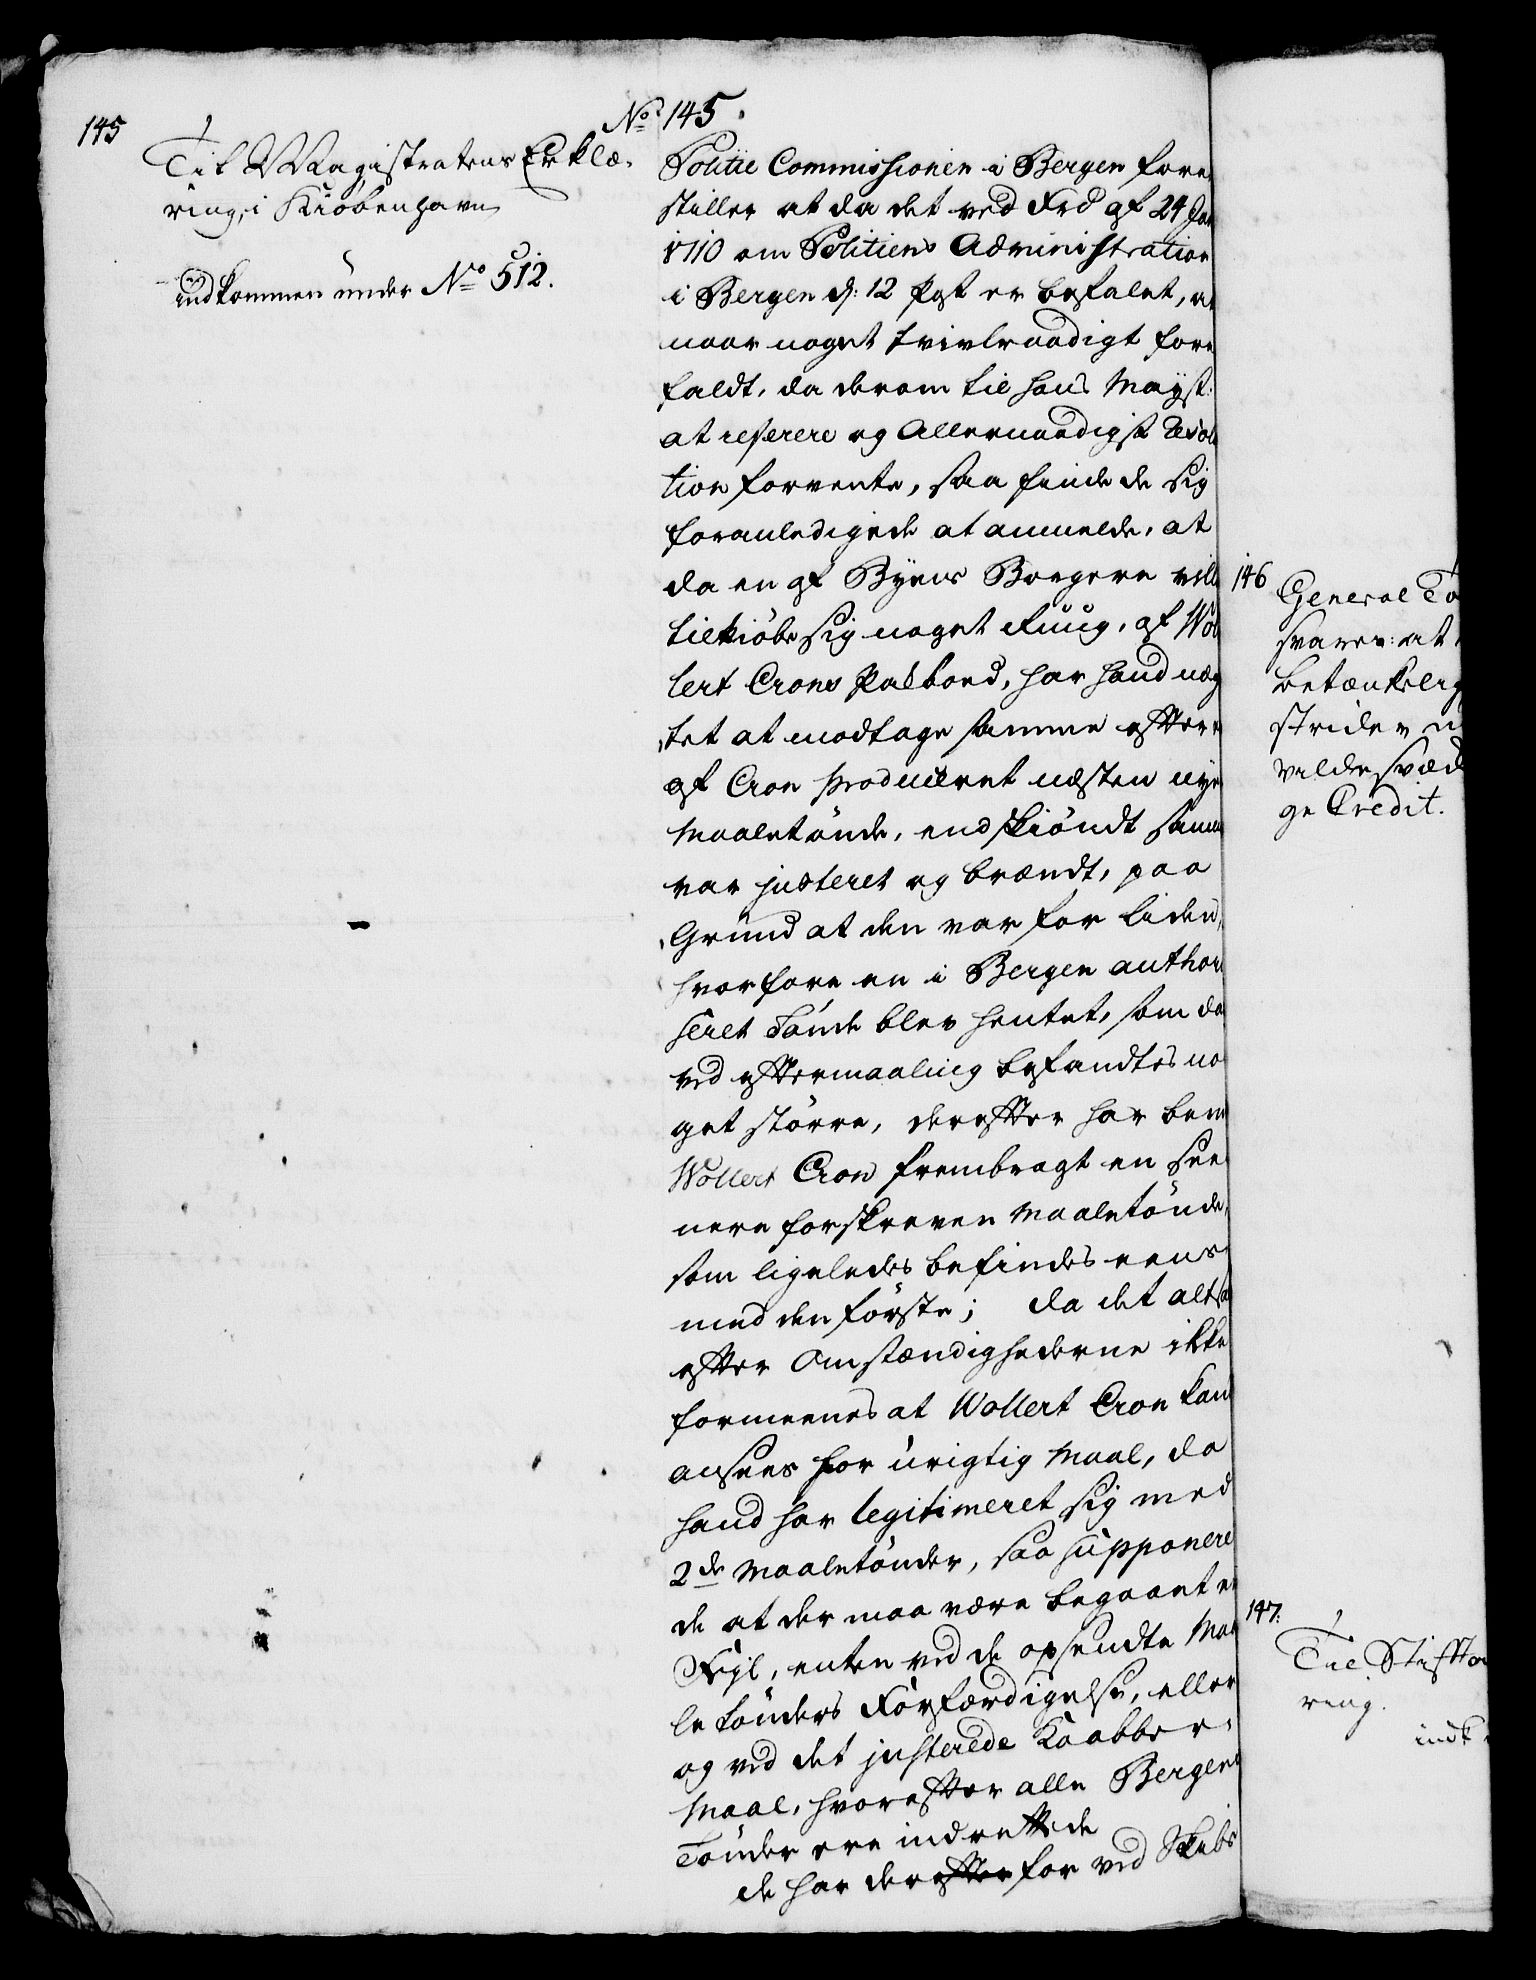 145
Til Magistratens Erklæ-
ring, i Kiöbenhavn
indkommen under No 512.
No 145.
Politie Commissionen i Bergen fore
stiller at da det ved Frd af 24 Jan
1710 om Politiens Administration
i Bergen d: 12 Post er befalet, at
naar noget tvivlraadigt fore
faldt, da derom til Hans Mayst:
at referere og Allernaadigst Resolu
tion forvente, saa finde de sig
foranledigede at anmelde, at
da en af Byens Borgere vilde
tilkiöbe sig noget Ruug, af Wol
lert Crons Pakboed, har hand næg
tet at modtage samme efter en
af Cron produceret næsten nye
Maaletönde, endskiöndt samme
var justeret og brændt, paa
Grund at den var for liden,
hvorfore en i Bergen authori
seret Tönde blev hentet, som da
ved eftermaaling befandtes no
get större, derefter har bem
Wollert Cron frembragt en see
nere forskreven Maaletönde,
som ligeledes befindes eens
med den förste; da det altsaa
efter Omstændighederne ikke
formeenes at Wollert Cron kand
ansees for urigtig Maal, da
hand har legitimeret sig med
2de Maaletönder, saa supponere
de at der maa være begaaet en
Fejl, enten ved de opsendte Maa
letönders Forfærdigelse, eller
og ved det justerede Kaabber-
Maal, hvorefter alle Bergens
Tönder ere indrettede
de har derefter for ved Skibs
146
General To
svarer: at
betænkelig
strider
vilde svæk
ge Credit.
147.
Til Stiftam
ring.
indk